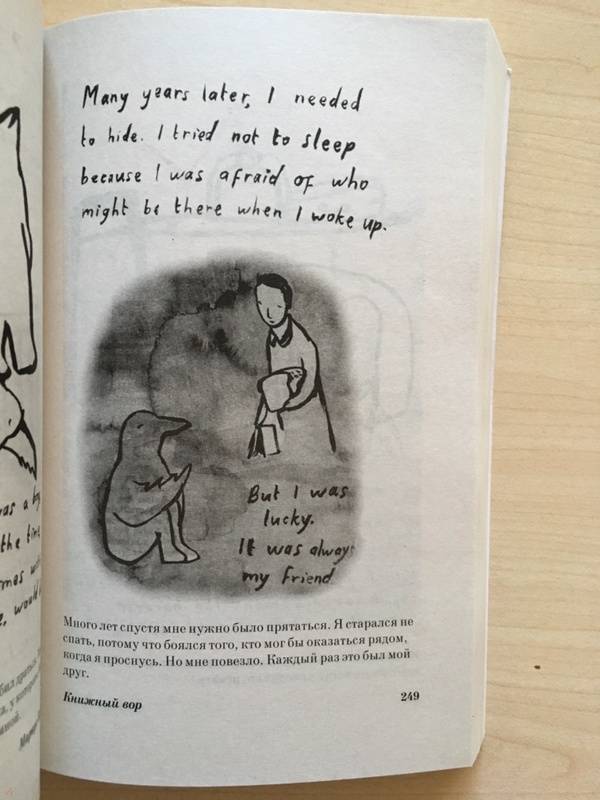 Many years later, I needed
to hide. I tried not to sleep
because I was afraid of who
might be there when I woke up.
But I was
lucky.
It was always
my friend.
Много лет спустя мне нужно было прятаться. Я старался не
спать, потому что боялся того, кто мог бы оказаться рядом,
когда я проснусь. Но мне повезло. Каждый раз это был мой
друг.
Книжный вор
249